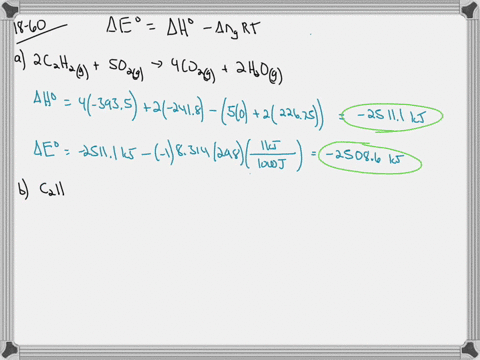 18-60 ΔE° = ΔH° - Δn_g RT
a) 2C₂H₂(g) + 5O₂(g) → 4CO₂(g) + 2H₂O(g)
ΔH° = 4(-393.5) + 2(-241.8) - (5(0) + 2(226.75)) = -2511.1 kJ
ΔE° = -2511.1 kJ - (-1) 8.314 (298) (1kJ/1000J) = -2508.6 kJ
b) C₂H